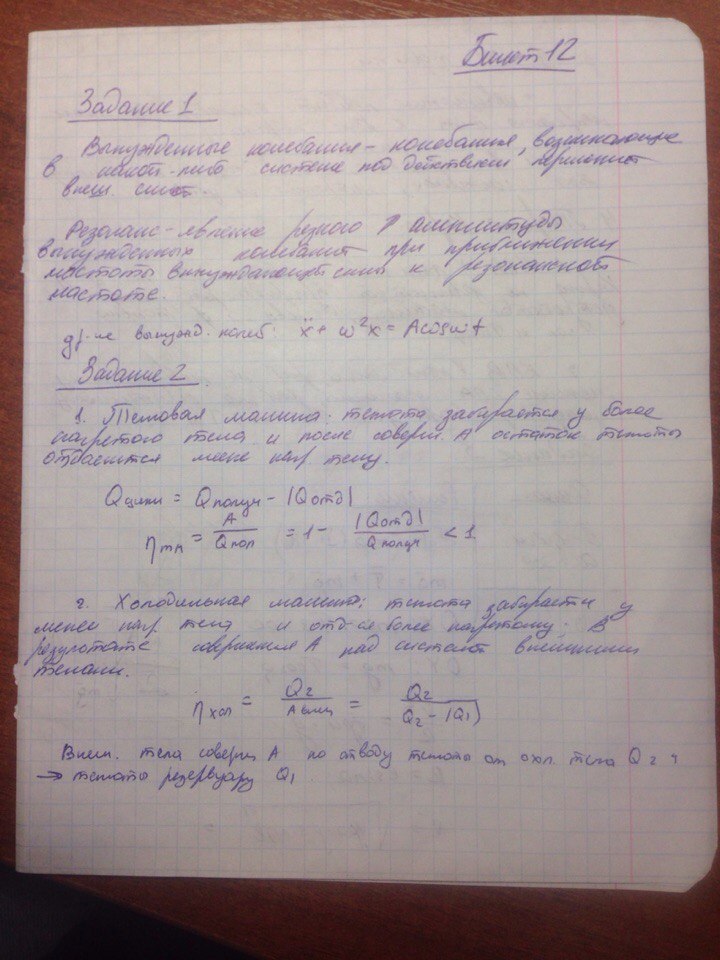 Билет 12
Задание 1
Вынужденные колебания - колебания, возникающие
в какой-либо системе под действием переменн
внеш. сил
Резонанс - явление резкого ↑ амплитуды
вынужденных колебаний при приближении
частоты вынуждающей силы к резонансной
частоте.
ур-не вынужд. колеб: ẍ + ω²x = Acosωt
Задание 2
1. Тепловая машина: теплота забирается у более
нагретого тела и после соверш. A остаток теплоты
отдается менее нагр телу.
Qцикл = Qполуч - |Qотд|
ηтм = A / Qпол = 1 - |Qотд| / Qполуч < 1
2. Холодильная машина: теплота забирается у
менее нагр. тела и отд-ся более нагретому. В
результате совершения A над системой внешними
телами.
ηхол = Q2 / Aвнеш = Q2 / Q2 - |Q1|
Внеш. тела соверш A по отводу теплоты от охл. тела Q2 и
→ теплоты резервуару Q1.